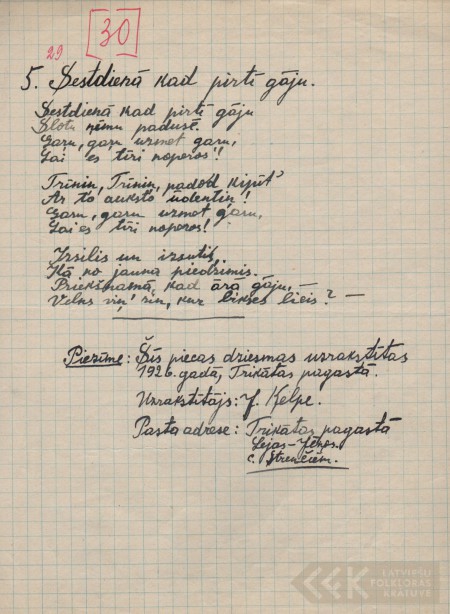 29 30
5. Sestdienā kad pirtī gāju.
Sestdienā kad pirtī gāju
Slotu ņēmu padusē.
Garu, garu uzmet garu,
Lai es tīri noperos!!
Trīnin, Trīnin, padod ķipīt'
Ar to auksto ūdentiņ!
Garu, garu uzmet garu,
Lai es tīri noperos!
Izsilis un izsutis,
Kā no jauna piedzimis.
Priekšnamā, kad ārā gāju, —
Velns viņ' zin, kur bikses lieis? —
Piezīme: Šīs piecas dziesmas uzrakstītas
1926. gadā, Trikātas pagastā.
Uzrakstītājs: J. Ķelpe.
Pasta adrese: Trikātas pagastā
Lejas-
c. Strenčiem.
LATVIEŠU
FOLKLORAS
KRĀTUVE